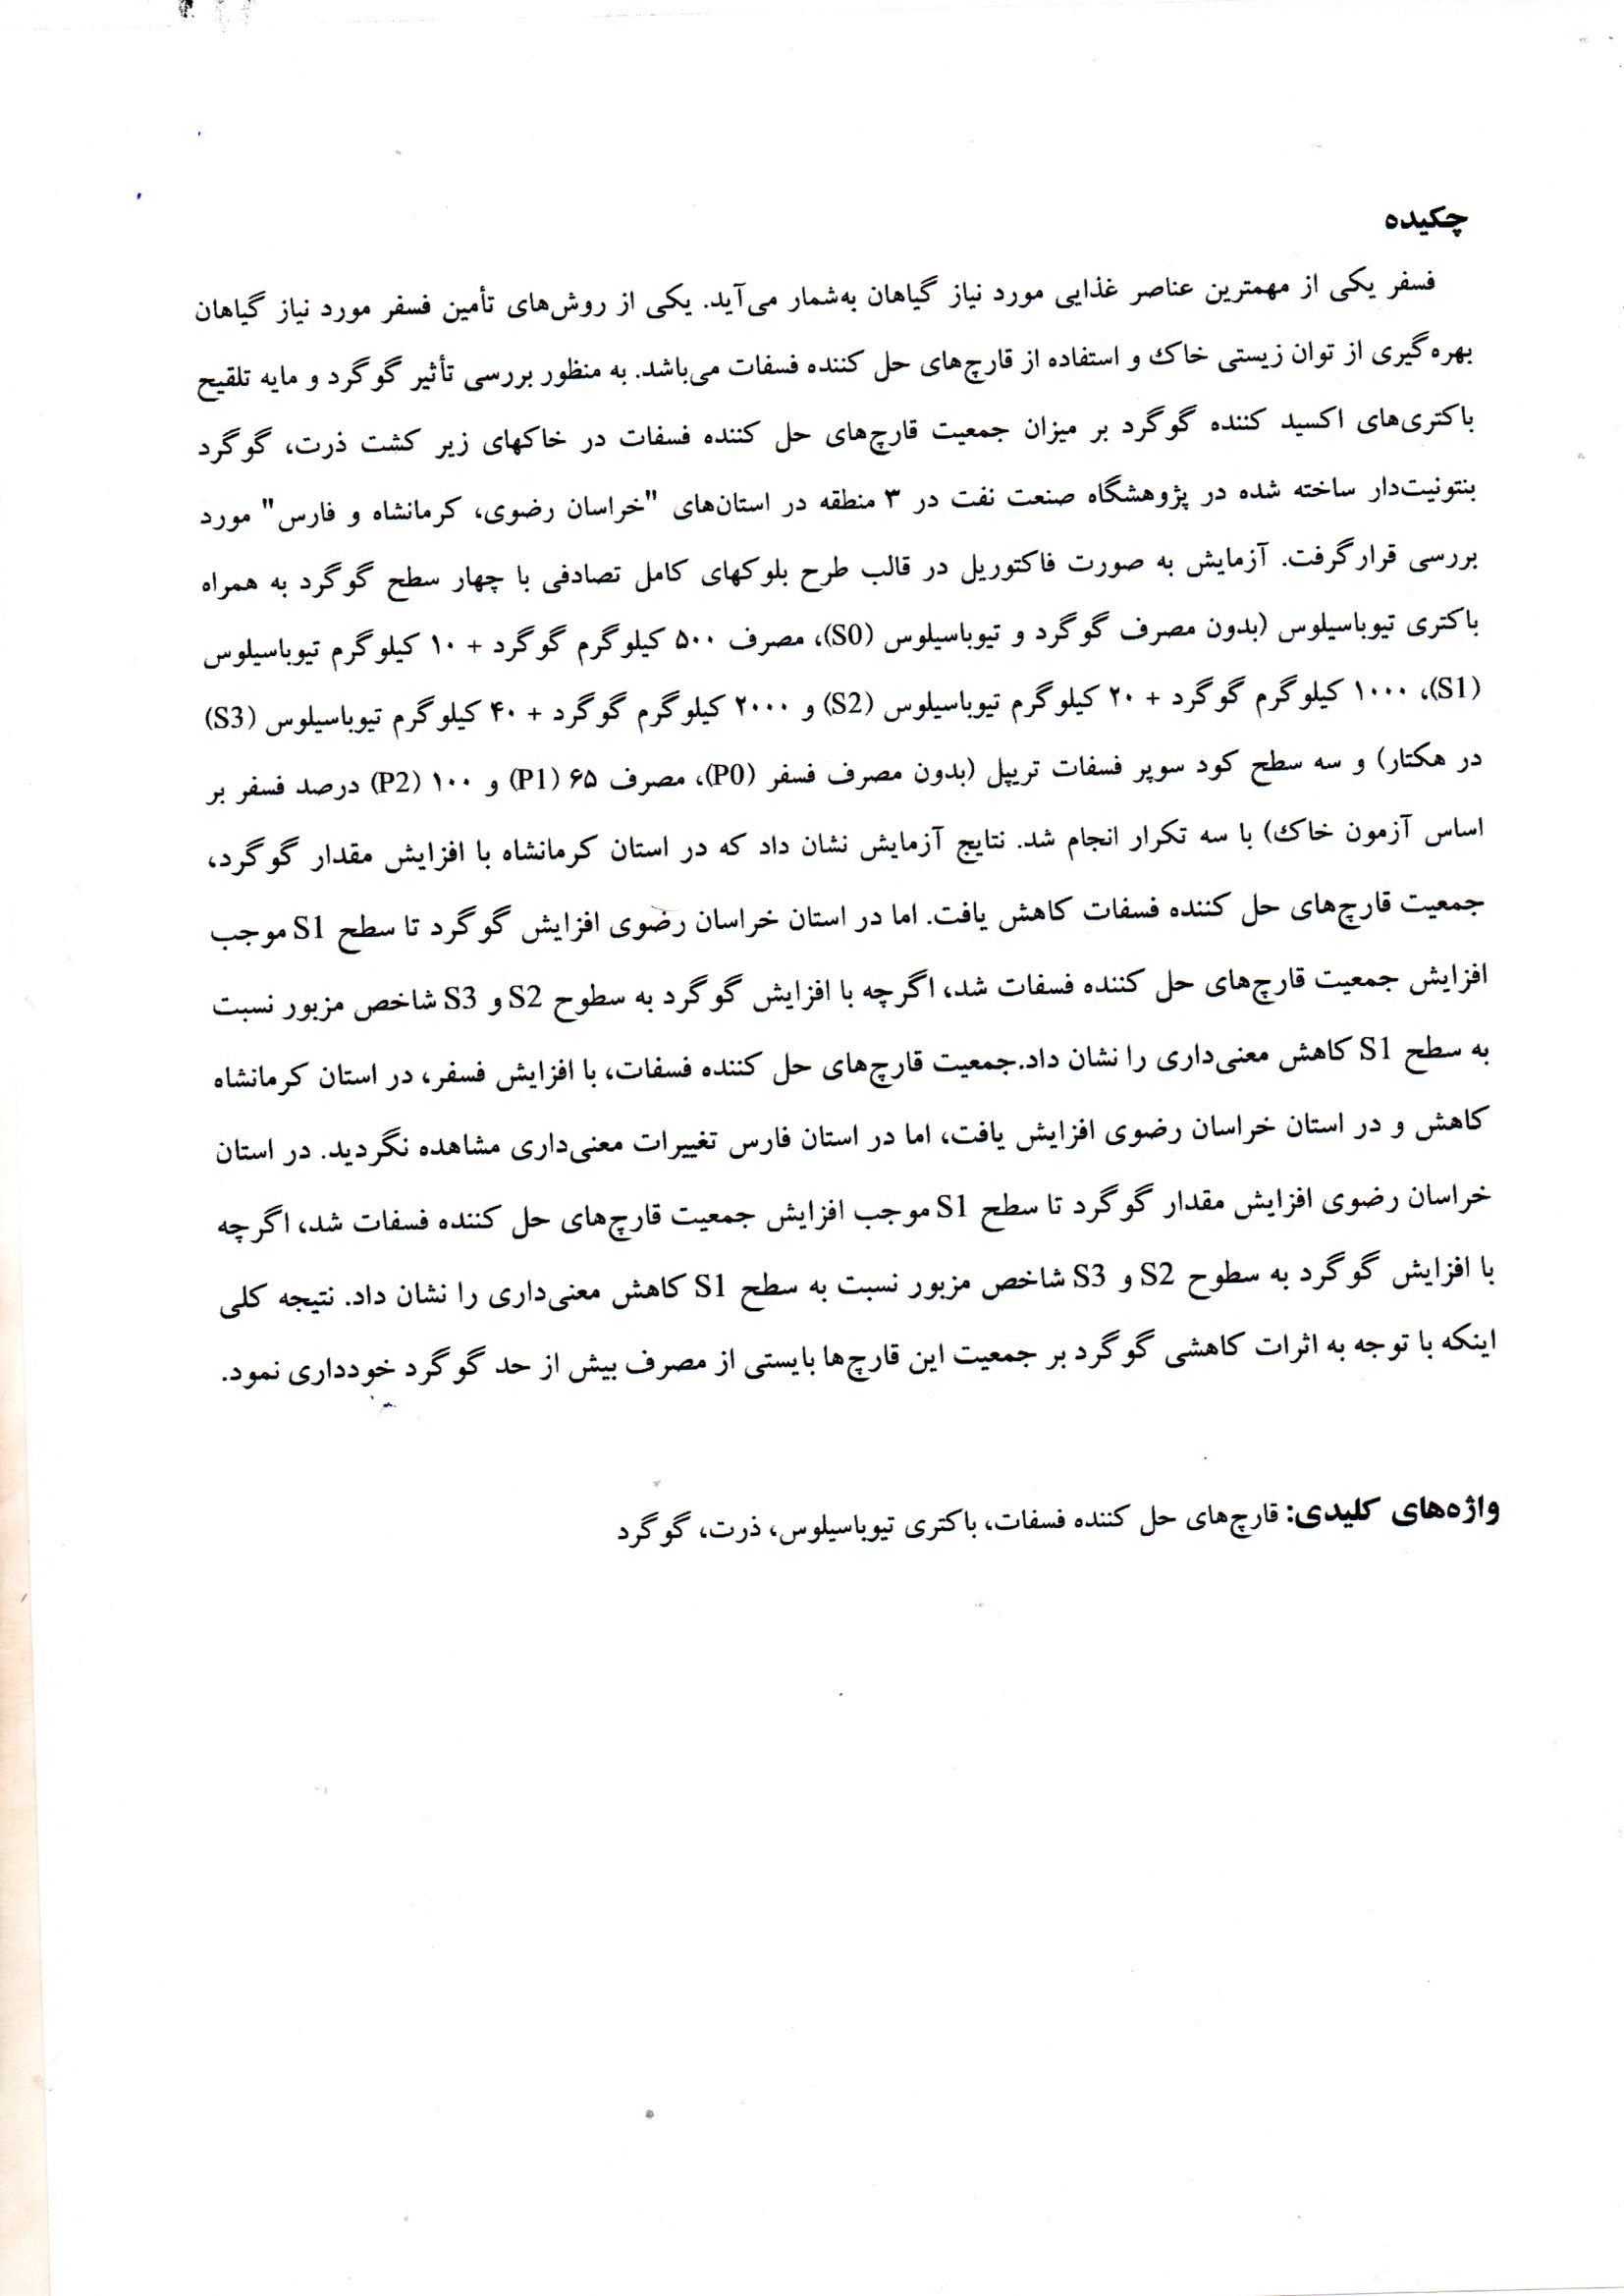 چکیده
فسفر یکی از مهمترین عناصر غذایی مورد نیاز گیاهان به‌شمار می‌آید. یکی از روش‌های تأمین فسفر مورد نیاز گیاهان
بهره‌گیری از توان زیستی خاک و استفاده از قارچ‌های حل کننده فسفات می‌باشد. به منظور بررسی تأثیر گوگرد و مایه تلقیح
باکتری‌های اکسید کننده گوگرد بر میزان جمعیت قارچ‌های حل کننده فسفات در خاکهای زیر کشت ذرت، گوگرد
بنتونیت‌دار ساخته شده در پژوهشگاه صنعت نفت در ۳ منطقه در استان‌های "خراسان رضوی، کرمانشاه و فارس" مورد
بررسی قرارگرفت. آزمایش به صورت فاکتوریل در قالب طرح بلوکهای کامل تصادفی با چهار سطح گوگرد به همراه
باکتری تیوباسیلوس (بدون مصرف گوگرد و تیوباسیلوس (S0)، مصرف ۵۰۰ کیلوگرم گوگرد + ۱۰ کیلوگرم تیوباسیلوس
(S1)، ۱۰۰۰ کیلوگرم گوگرد + ۲۰ کیلوگرم تیوباسیلوس (S2) و ۲۰۰۰ کیلوگرم گوگرد + ۴۰ کیلوگرم تیوباسیلوس (S3)
در هکتار) و سه سطح کود سوپر فسفات تریپل (بدون مصرف فسفر (P0)، مصرف ۶۵ (P1) و ۱۰۰ (P2) درصد فسفر بر
اساس آزمون خاک) با سه تکرار انجام شد. نتایج آزمایش نشان داد که در استان کرمانشاه با افزایش مقدار گوگرد،
جمعیت قارچ‌های حل کننده فسفات کاهش یافت. اما در استان خراسان رضوی افزایش گوگرد تا سطح S1 موجب
افزایش جمعیت قارچ‌های حل کننده فسفات شد، اگرچه با افزایش گوگرد به سطوح S2 و S3 شاخص مزبور نسبت
به سطح S1 کاهش معنی‌داری را نشان داد.جمعیت قارچ‌های حل کننده فسفات، با افزایش فسفر، در استان کرمانشاه
کاهش و در استان خراسان رضوی افزایش یافت، اما در استان فارس تغییرات معنی‌داری مشاهده نگردید. در استان
خراسان رضوی افزایش مقدار گوگرد تا سطح S1 موجب افزایش جمعیت قارچ‌های حل کننده فسفات شد، اگرچه
با افزایش گوگرد به سطوح S2 و S3 شاخص مزبور نسبت به سطح S1 کاهش معنی‌داری را نشان داد. نتیجه کلی
اینکه با توجه به اثرات کاهشی گوگرد بر جمعیت این قارچ‌ها بایستی از مصرف بیش از حد گوگرد خودداری نمود.
واژه‌های کلیدی: قارچ‌های حل کننده فسفات، باکتری تیوباسیلوس، ذرت، گوگرد